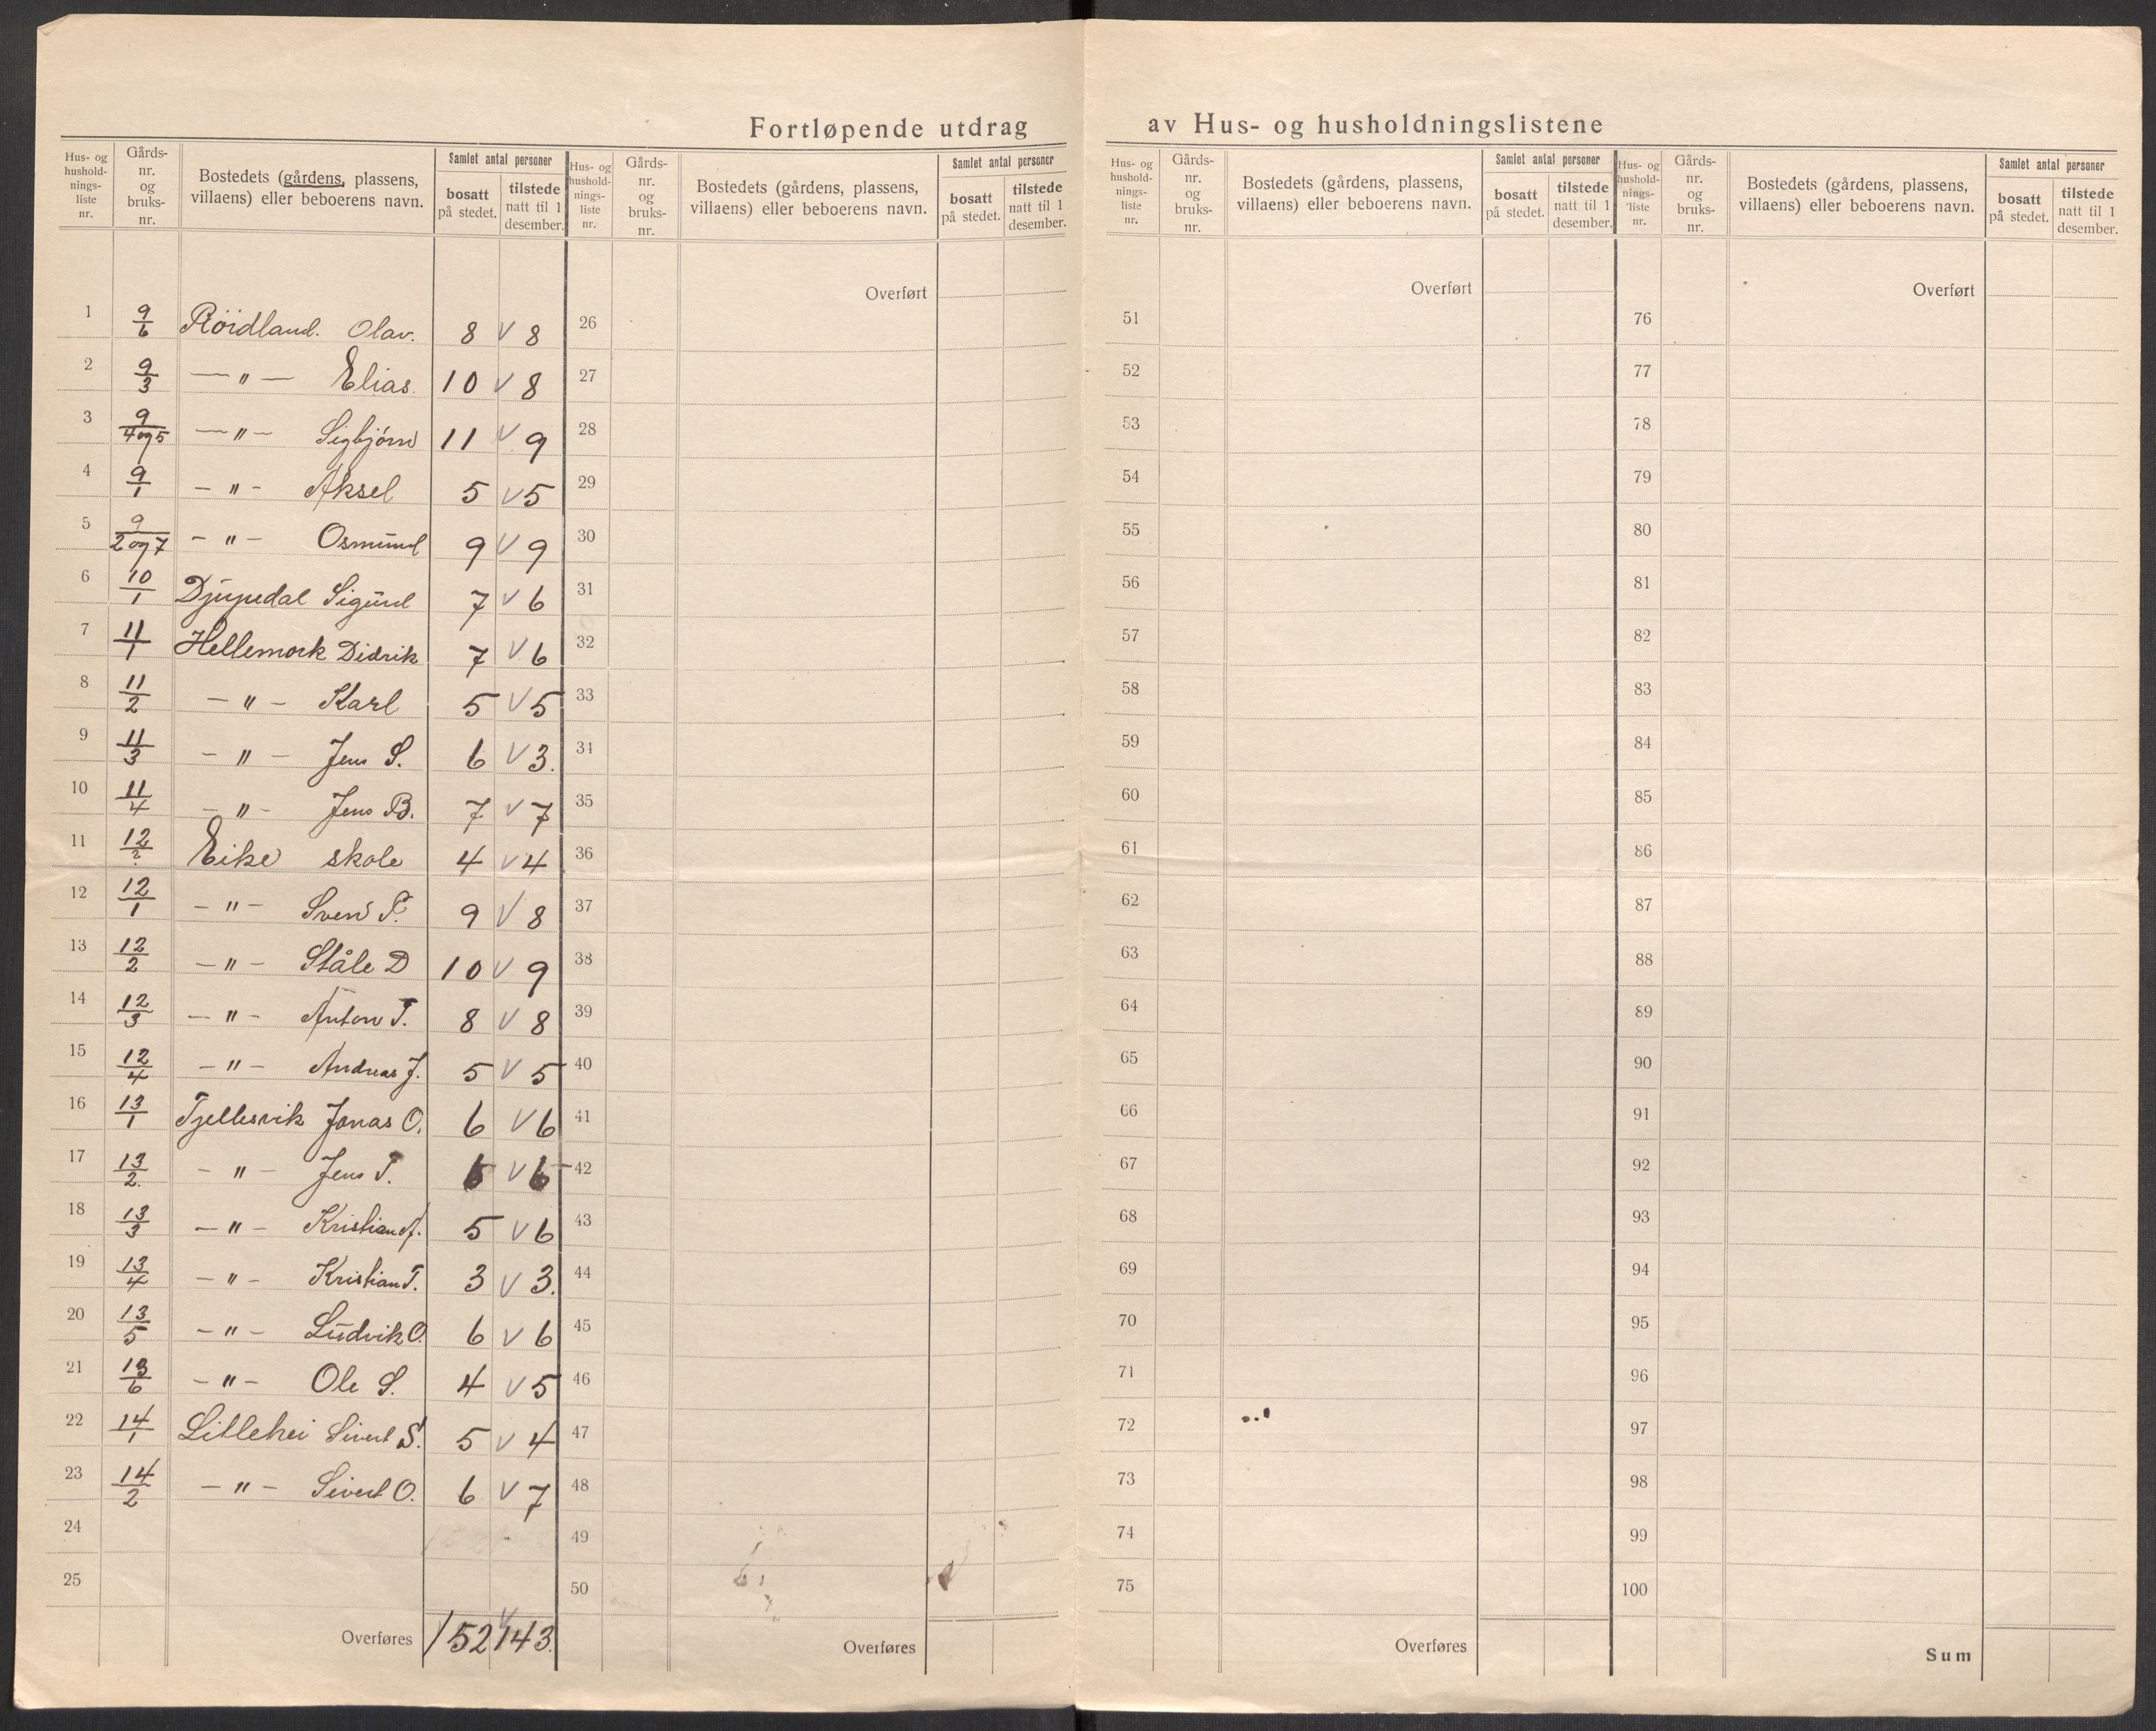 Fortløpende utdrag av Hus- og husholdningslistene
Hus- og hushold-nings-liste nr. | Gårds-nr. og bruks-nr. | Bostedets (gårdens, plassens, villaens) eller beboerens navn. | Samlet antal personer | bosatt på stedet. | tilstede natt til 1 desember.
Hus- og hushold-nings-liste nr. | Gårds-nr. og bruks-nr. | Bostedets (gårdens, plassens, villaens) eller beboerens navn. | Samlet antal personer | bosatt på stedet. | tilstede natt til 1 desember.
Hus- og hushold-nings-liste nr. | Gårds-nr. og bruks-nr. | Bostedets (gårdens, plassens, villaens) eller beboerens navn. | Samlet antal personer | bosatt på stedet. | tilstede natt til 1 desember.
Hus- og hushold-nings-liste nr. | Gårds-nr. og bruks-nr. | Bostedets (gårdens, plassens, villaens) eller beboerens navn. | Samlet antal personer | bosatt på stedet. | tilstede natt til 1 desember.
1 9/6 Röidland. Olav. 8 v 8
2 9/3 —"— Elias. 10 v 8
3 9/4og5 —"— Sigbjørn 11 v 9
4 9/1 —"— Aksel 5 v 5
5 9/2og7 —"— Osmund 9 v 9
6 10/1 Djupedal Sigurd 7 v 6
7 11/1 Hellemork Didrik 7 v 6
8 11/2 —"— Karl 5 v 5
9 11/3 —"— Jens S. 6 v 3.
10 11/4 —"— Jens B. 7 v 7
11 12/? Eike skole 4 v 4
12 12/1 —"— Sven T. 9 v 8
13 12/2 —"— Ståle D 10 v 9
14 12/3 —"— Anton T. 8 v 8
15 12/4 —"— Andreas J. 5 v 5
16 13/1 Tjellesvik Jonas O. 6 v 6
17 13/2. —"— Jens T. 6 v 6
18 13/3 —"— Kristian J. 5 v 6
19 13/4 —"— Kristian T. 3 v 3.
20 13/5 —"— Ludvik O. 6 v 6
21 13/6 —"— Ole S. 4 v 5
22 14/1 Lillehei Sivert S. 5 v 4
23 14/2 —"— Sivert O. 6 v 7
24
25
Overføres 152 v 143.
Overført
26
27
28
29
30
31
32
33
34
35
36
37
38
39
40
41
42
43
44
45
46
47
48
49
50
Overføres
Overført
51
52
53
54
55
56
57
58
59
60
61
62
63
64
65
66
67
68
69
70
71
72
73
74
75
Overføres
Overført
76
77
78
79
80
81
82
83
84
85
86
87
88
89
90
91
92
93
94
95
96
97
98
99
100
Sum